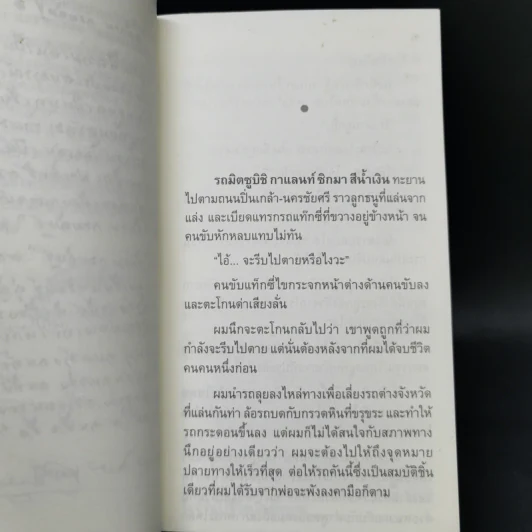 รถมิตซูบิชิ กาแลนท์ ซิกมา สีน้ำเงิน ทะยาน
ไปตามถนนปิ่นเกล้า-นครชัยศรี ราวลูกธนูที่แล่นจาก
แล่ง และเบียดแทรกรถแท๊กซี่ที่ขวางอยู่ข้างหน้า จน
คนขับหักหลบแทบไม่ทัน
“ไอ้... จะรีบไปตายหรือไงวะ”
คนขับแท็กซี่ไขกระจกหน้าต่างด้านคนขับลง
และตะโกนด่าเสียงลั่น
ผมนึกจะตะโกนกลับไปว่า เขาพูดถูกที่ว่าผม
กำลังจะรีบไปตาย แต่นั่นต้องหลังจากที่ผมได้จบชีวิต
คนคนหนึ่งก่อน
ผมนำรถลุยลงไหล่ทางเพื่อเลี่ยงรถต่างจังหวัด
ที่แล่นกันท่า ล้อรถบดกับกรวดหินที่ขรุขระ และทำให้
รถกระดอนขึ้นลง แต่ผมก็ไม่ได้สนใจกับสภาพทาง
นึกอยู่อย่างเดียวว่า ผมจะต้องไปให้ถึงจุดหมาย
ปลายทางให้เร็วที่สุด ต่อให้รถคันนี้ซึ่งเป็นสมบัติชิ้น
เดียวที่ผมได้รับจากพ่อจะพังลงคามือก็ตาม